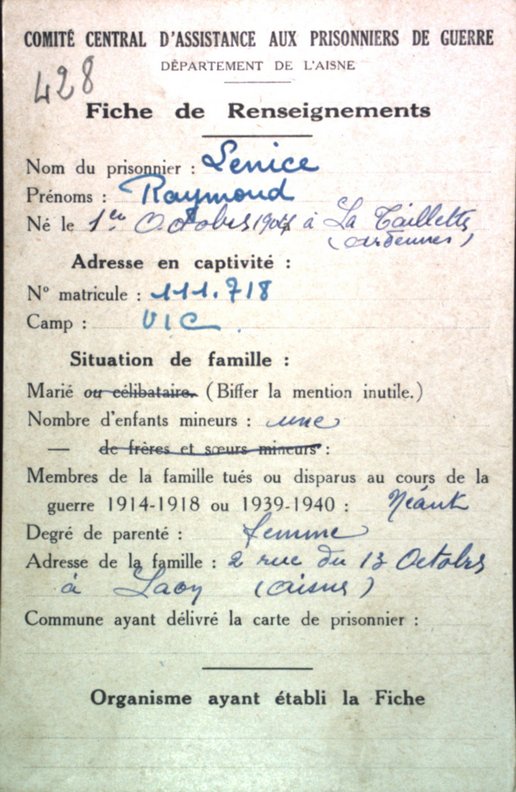 COMITÉ CENTRAL D'ASSISTANCE AUX PRISONNIERS DE GUERRE
DÉPARTEMENT DE L'AISNE
428
Fiche de Renseignements
Nom du prisonnier : Lenice
Prénoms : Raymond
Né le 1er Octobre 1904 à La Taillette
(Ardennes)
Adresse en captivité :
N° matricule : 111.718
Camp : VIC.
Situation de famille :
Marié ou célibataire. (Biffer la mention inutile.)
Nombre d'enfants mineurs : une
— de frères et sœurs mineurs :
Membres de la famille tués ou disparus au cours de la
guerre 1914-1918 ou 1939-1940 : Néant
Degré de parenté : femme
Adresse de la famille : 2 rue du 13 Octobre
à Laon (Aisne)
Commune ayant délivré la carte de prisonnier :
Organisme ayant établi la Fiche